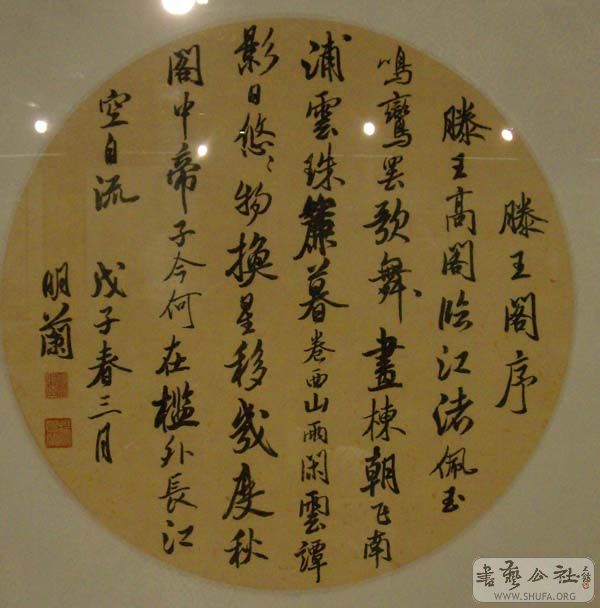 滕王閣序
滕王高閣临江渚佩玉
鳴鸞罢歌舞畫棟朝飞南
浦雲珠簾暮卷西山雨閑雲潭
影日悠〻物換星移幾度秋
閣中帝子今何在檻外長江
空自流 戊子春三月
明蘭
書藝公社
WWW.SHUFA.ORG